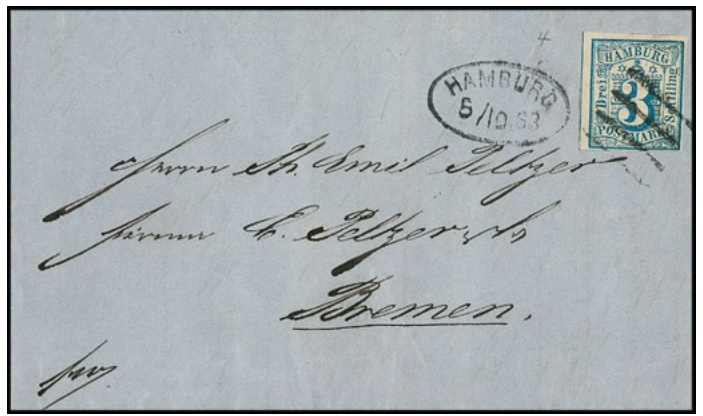 4
HAMBURG
5/10.63
HAMBURG
Drei
3
Schilling
POSTMARKE
Herrn Th. Emil Peltzer
C. Peltzer
Bremen.